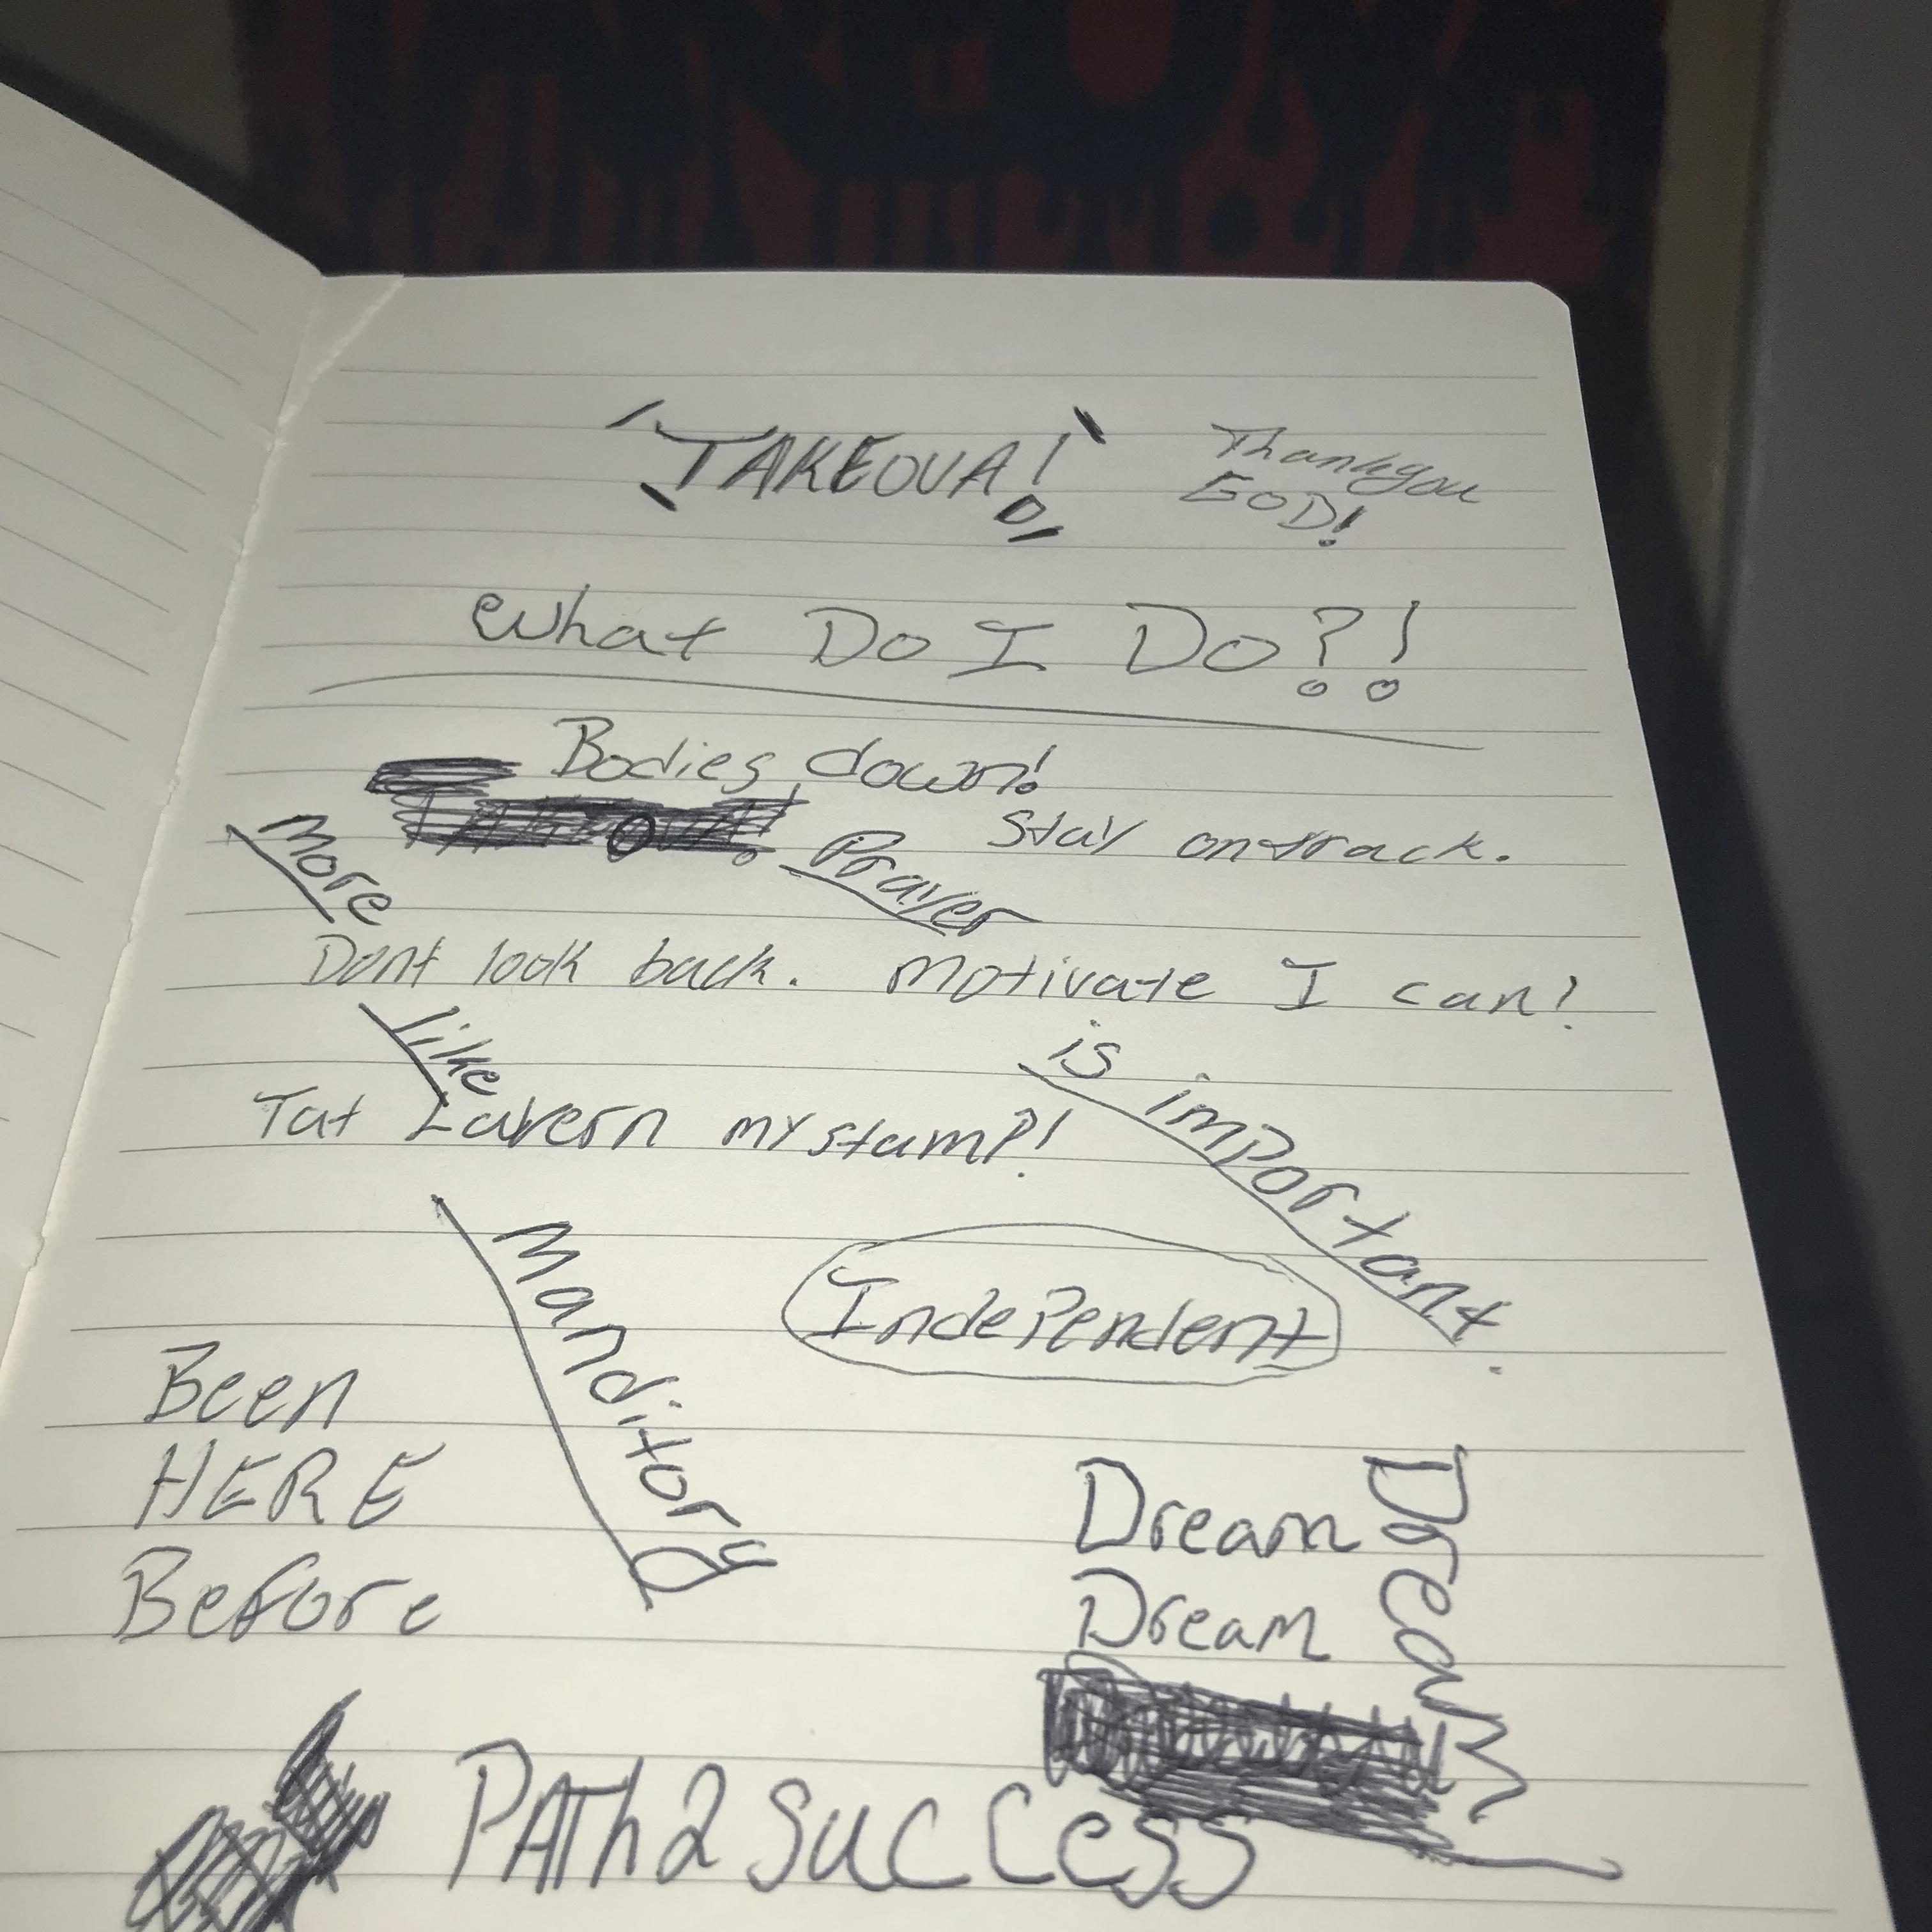 TAKEOVA!
Thankyou
GOD!
What Do I Do?!
Bodies down!
Stay ontrack.
More
Prayer
Dont look back. Motivate I can!
like
is important.
Tat Lavern my stamp?!
Manditory
Independent
Been
HERE
Before
Dream
Dream
Dream
PATh2success